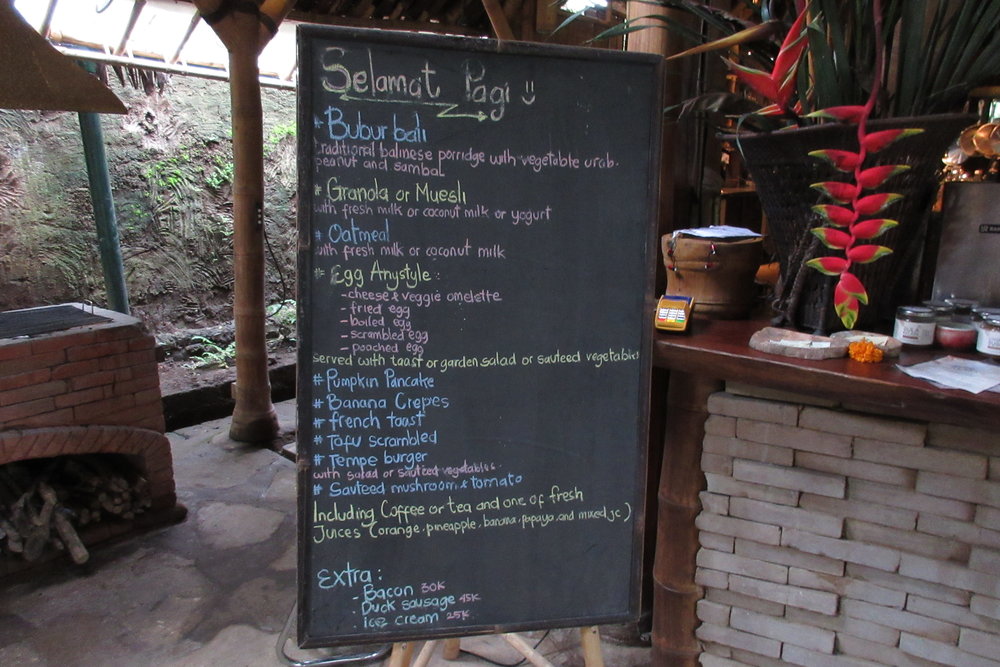 Selamat Pagi
# Bubur bali
traditional balinese porridge with vegetable urab.
peanut and sambal
# Granola or Muesli
with fresh milk or coconut milk or yogurt
# Oatmeal
with fresh milk or coconut milk
# Egg Anystyle :
- cheese & veggie omelette
- fried egg
- boiled egg
- scrambled egg
- pooched egg
served with toast or garden salad or sauteed vegetables
# Pumpkin Pancake
# Banana Crepes
# french toast
# Tofu scrambled
# Tempe burger
with salad or sauteed vegetables.
# Sauteed mushroom & tomato
Including Coffee or tea and one of fresh
Juices (orange, pineapple, banana, papaya, and mixed jc)
Extra :
- Bacon 30K
- Duck sausage 45K
- icez cream 25K